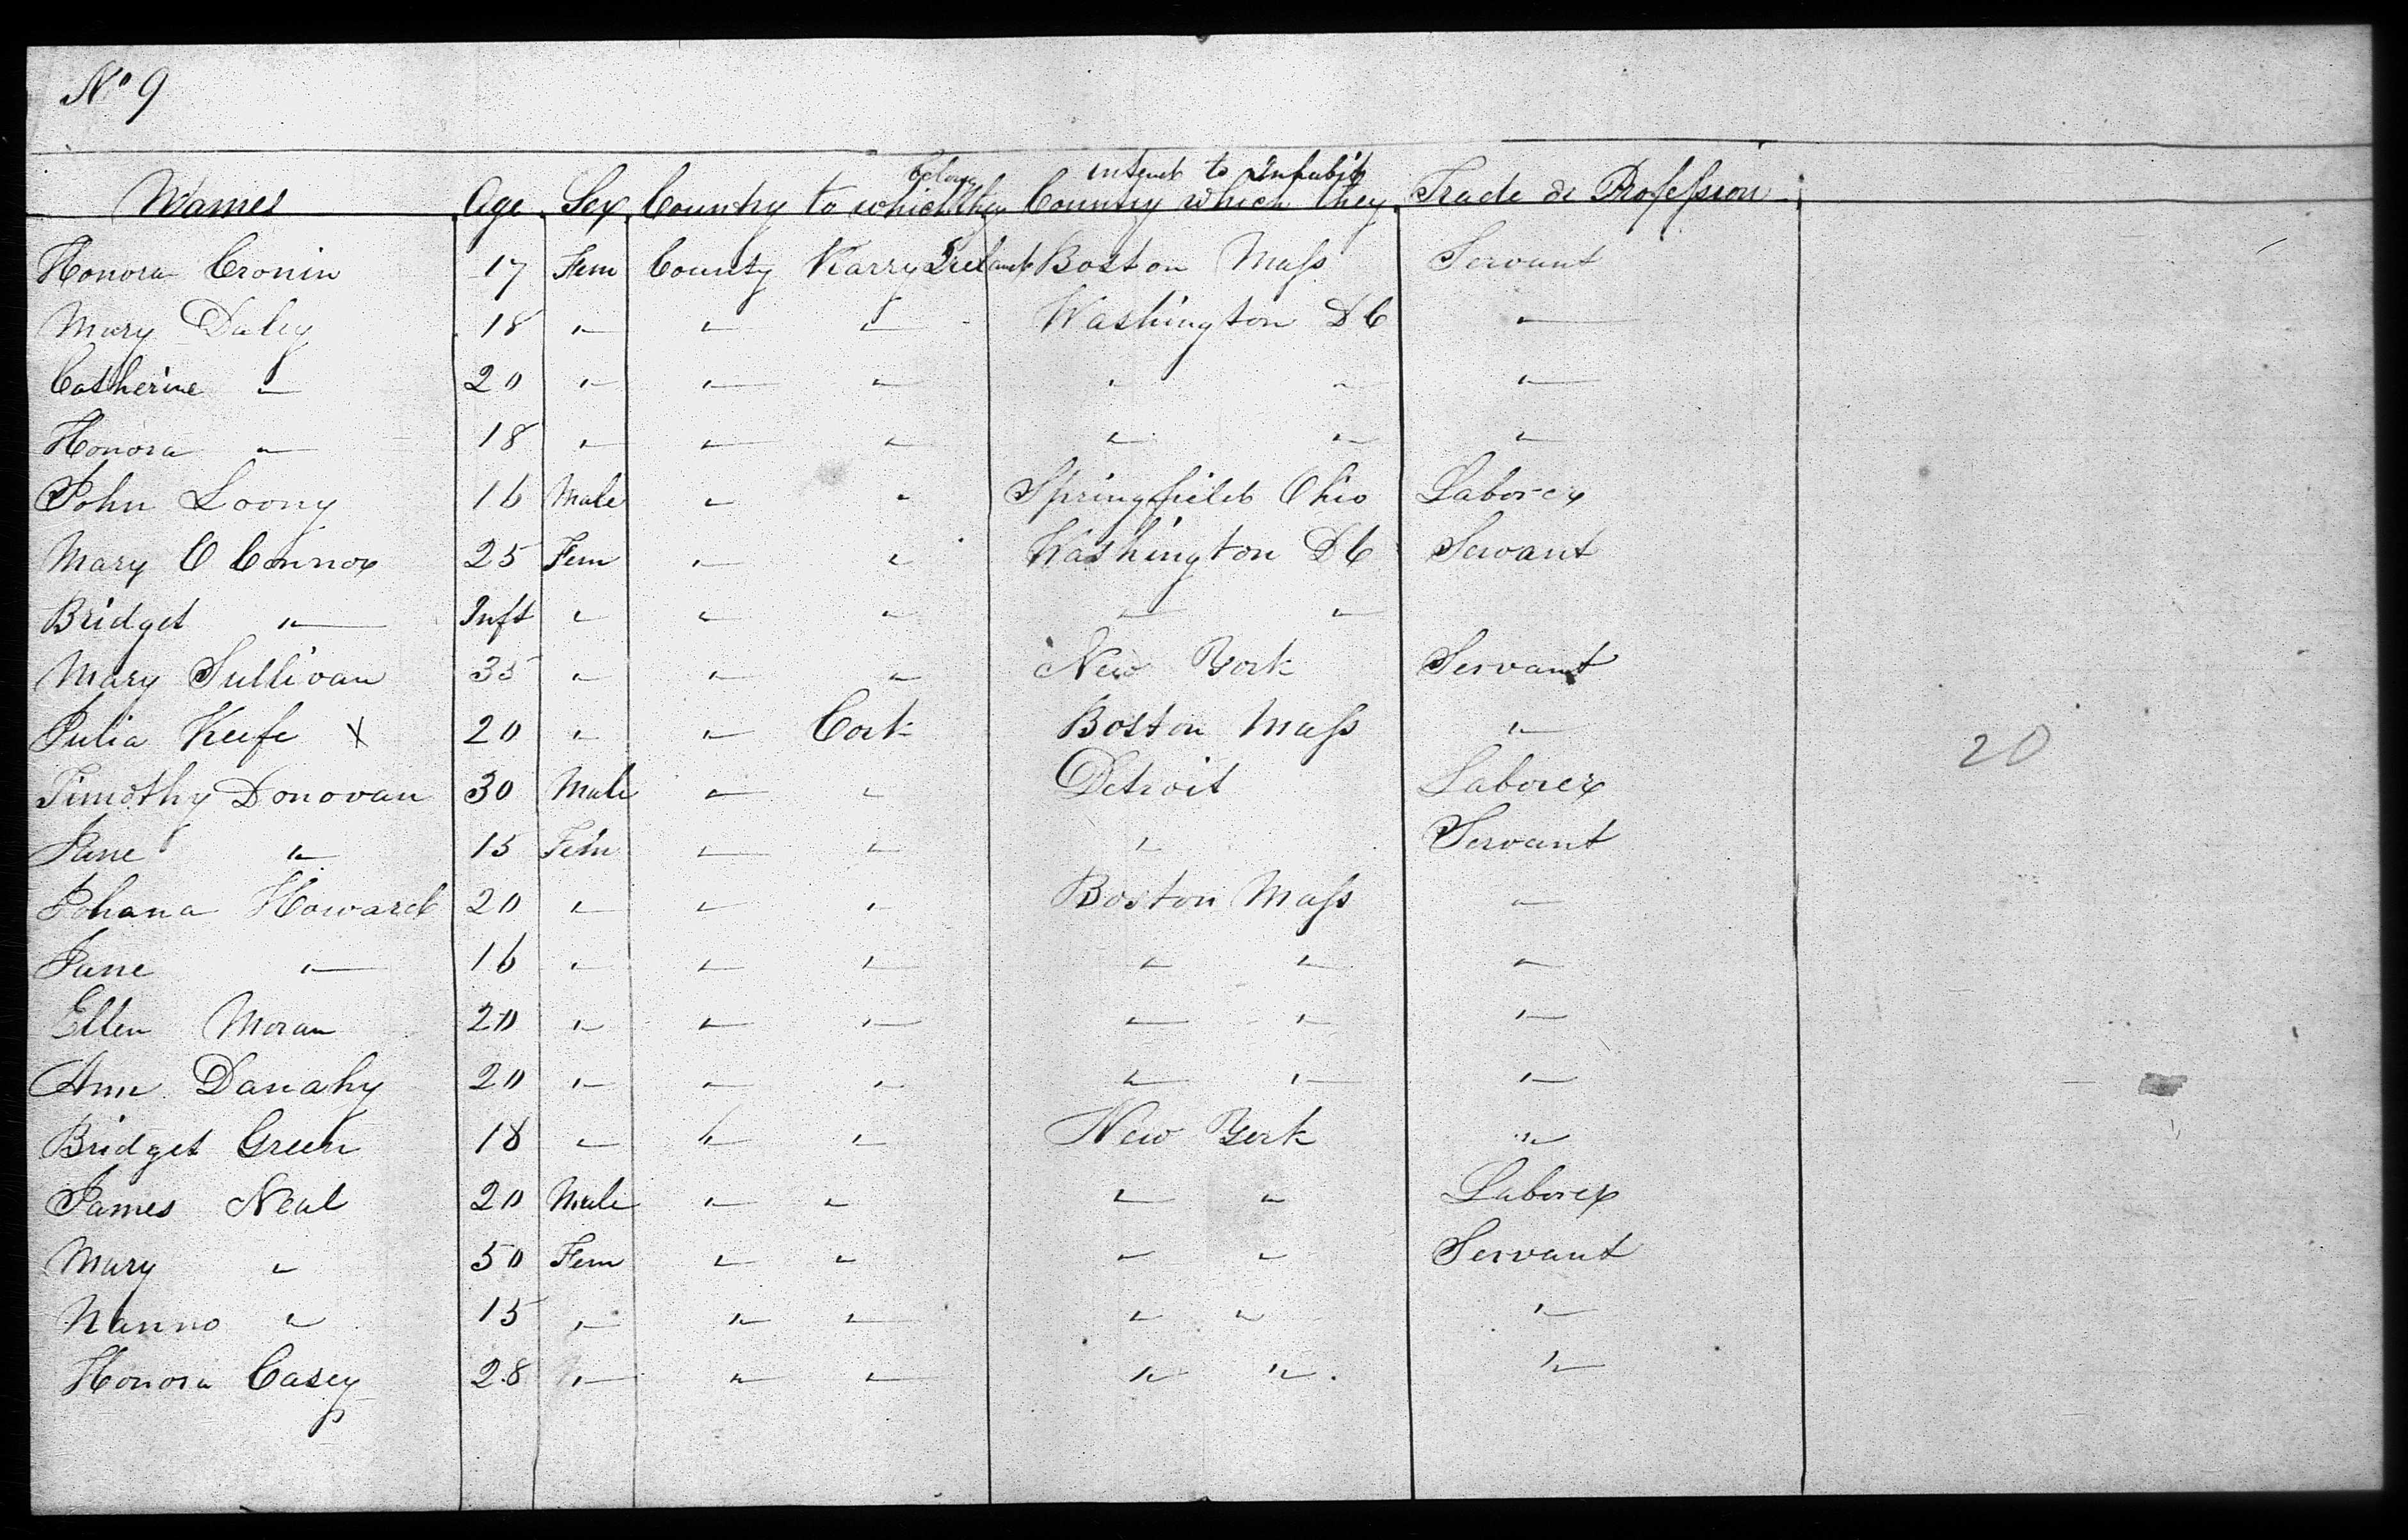 No 9
Names Age Sex Country to which they belong Country which they intend to Inhabit Trade or Profession
Honora Cronin 17 Fem County Karry Ireland Boston Mass Servant
Mary Daley 18 " " " Washington DC "
Catherine " 20 " " " " " "
Honora " 18 " " " " " "
John Loony 16 Male " " Springfield Ohio Laborer
Mary O Connor 25 Fem " " Washington DC Servant
Bridget " Inft " " " " "
Mary Sullivan 35 " " " New York Servant
Julia Keefe X 20 " " Cork Boston Mass "
20
Timothy Donovan 30 Male " " Detroit Laborer
Jane " 15 Fem " " " Servant
Johana Howard 20 " " " Boston Mass "
Jane " 16 " " " " " "
Ellen Moran 20 " " " " " "
Ann Danahy 20 " " " " " "
Bridget Green 18 " " " New York "
James Neal 20 Male " " " " Laborer
Mary " 50 Fem " " " " Servant
Nanno " 15 " " " " " "
Honora Casey 28 " " " " " "